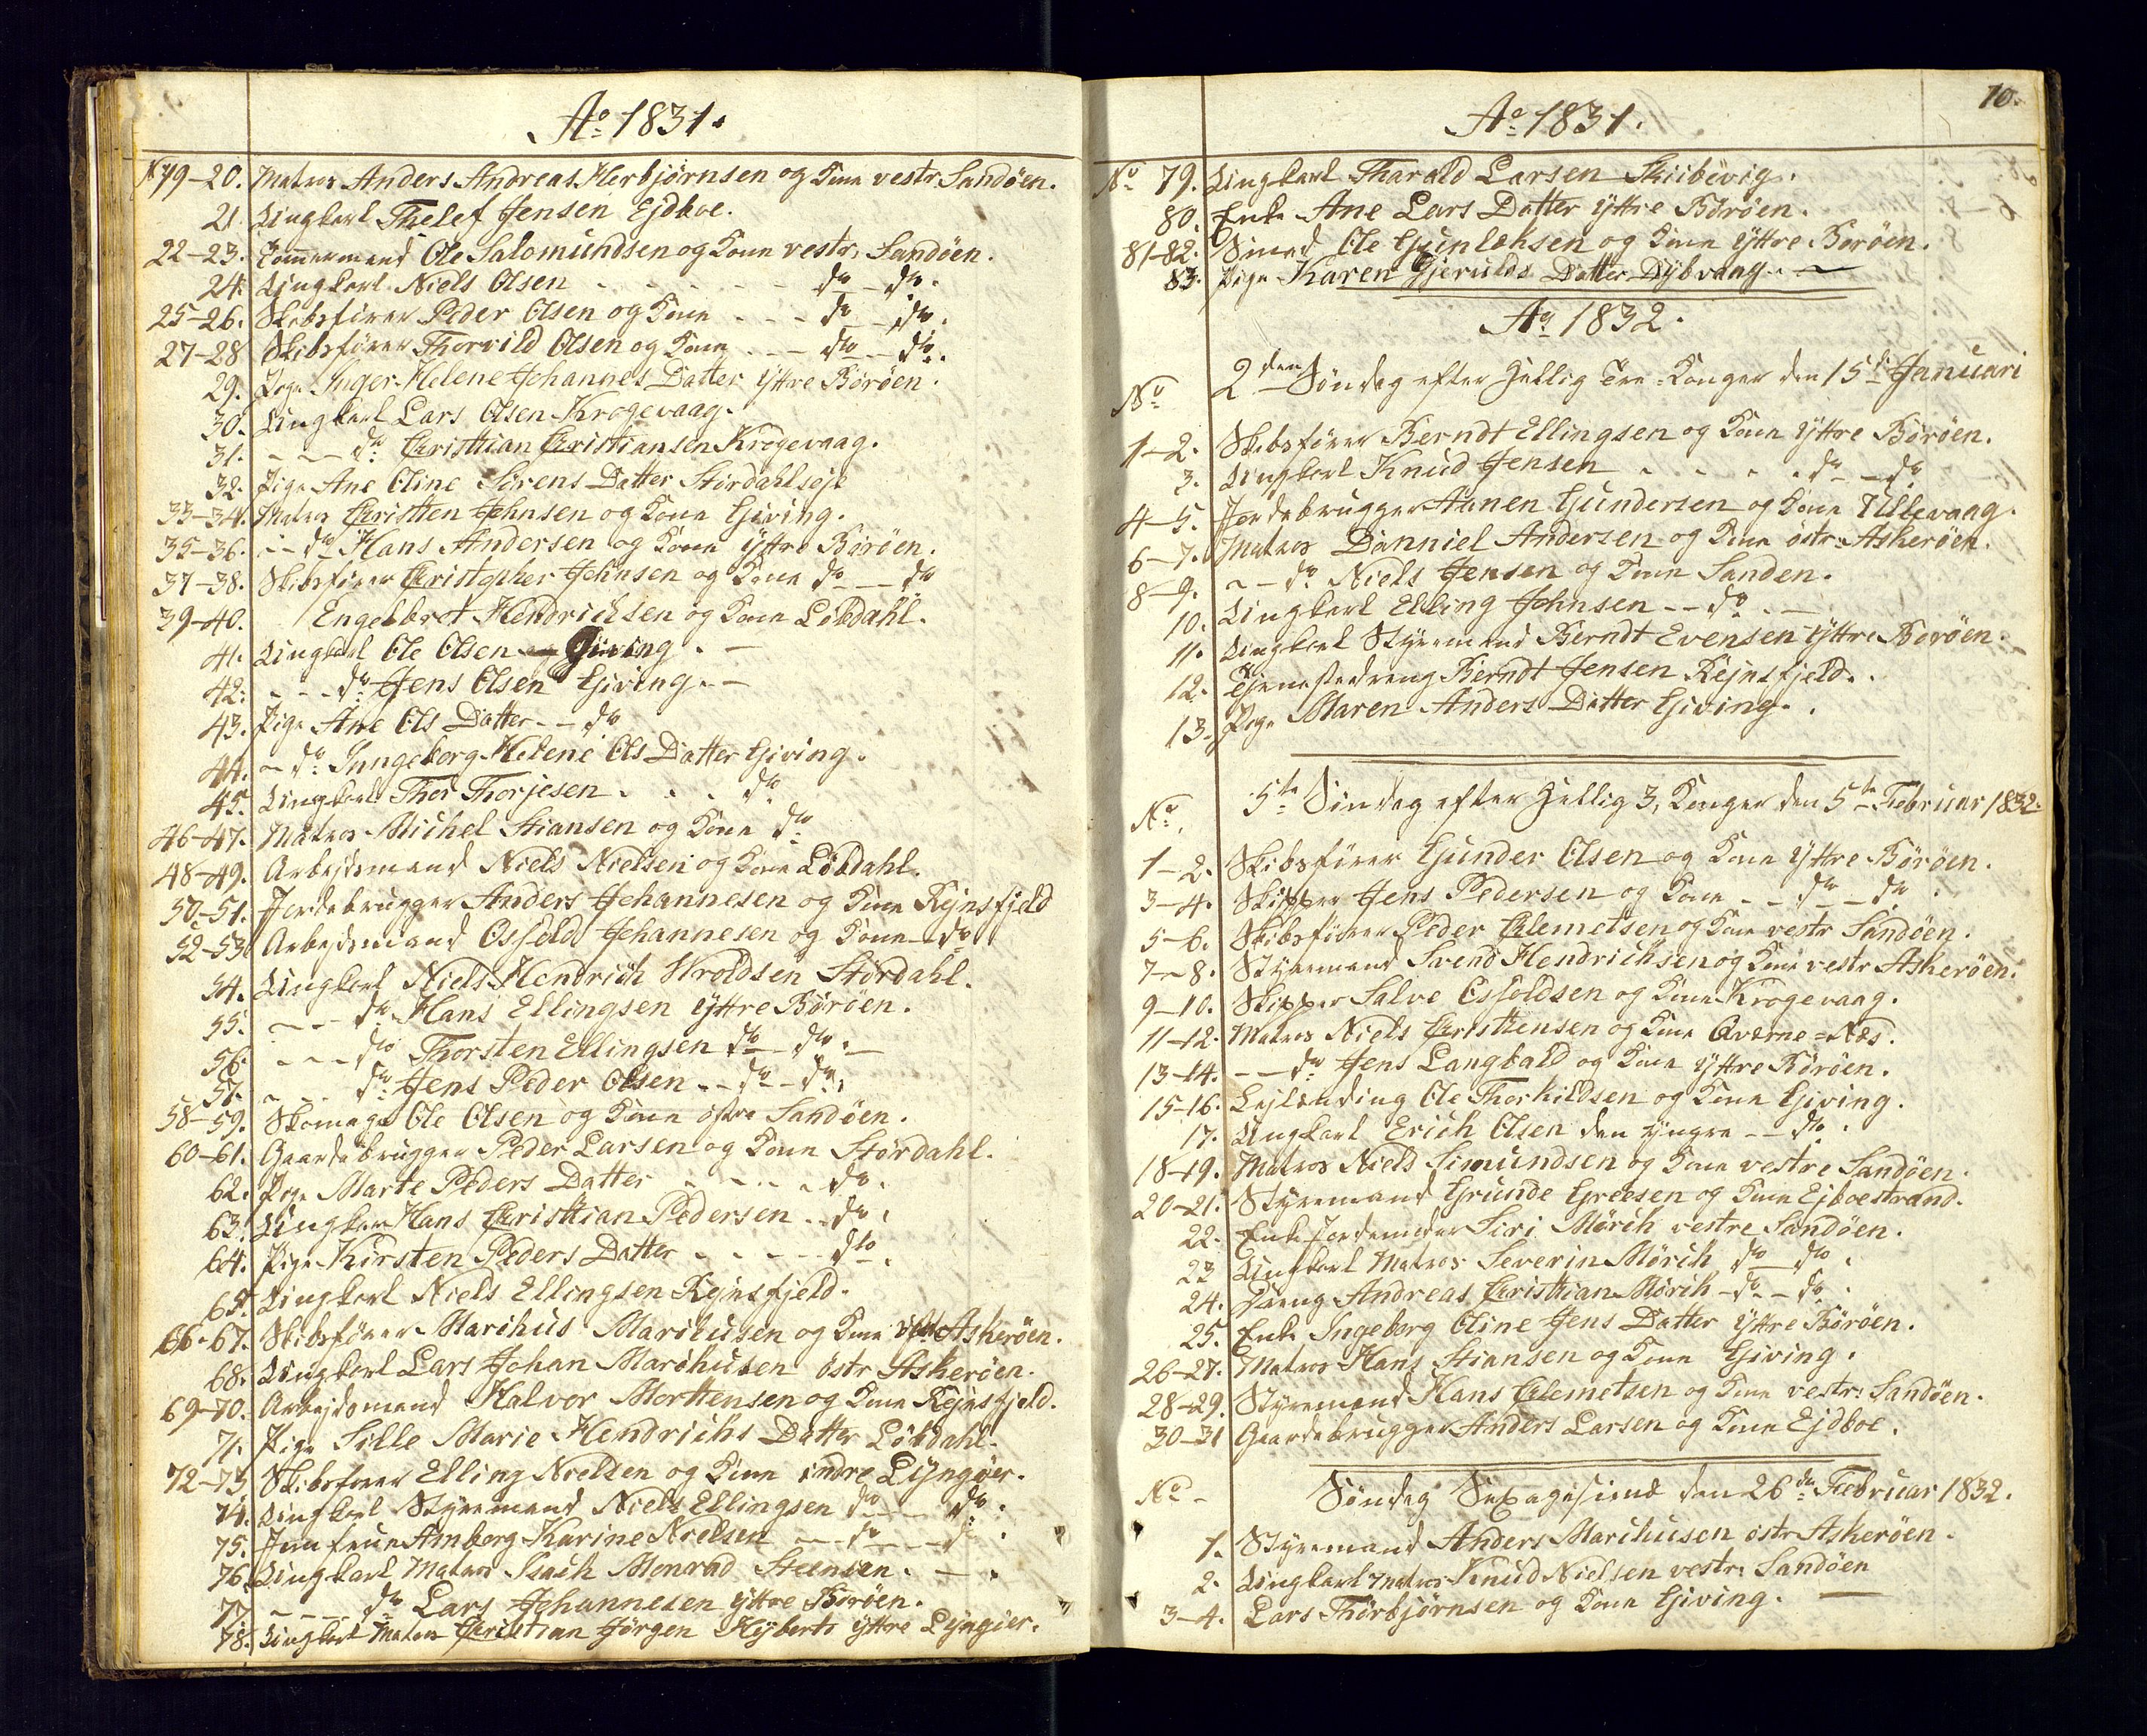 Ao 1831.
No 19-20. Matros Anders Andreas Herbjørnsen og Kone vestr Sandöen.
21. Ungkarl Thelef Jensen Ejdboe.
22-23. Tömmermand Ole Salomundsen og Kone vestr. Sandöen.
24. Ungkarl Niels Olsen - - - - do - do.
25-26. Skibsfører Peder Olsen og Kone - - - do - do.
27-28 Skibsfører Thorvild Olsen og Kone - - - do - do.
29. Pige Inger Helene Johannes Datter Yttre Börøen.
30. Ungkarl Lars Olsen Krogevaag.
31. - - - do Christian Christiansen Krogevaag.
32. Pige Ane Oline Sörens Datter Stördahlseje
33-34. Matros Christen Johnsen og Kone Giving.
35-36. - - do Hans Andersen og Kone Yttre Börøen.
37-38. Skibsfører Christopher Johnsen og Kone do - do
39-40. Engelbret Hendrichsen og Kone Löbdahl.
41. Ungkarl Ole Olsen Giving. -
42. - - - do Jens Olsen Giving. -
43. Pige Ane Ols Datter - - do
44. - do Inngeborg Helene Ols Datter Giving.
45. Ungkarl Thor Thorjesen . . . do
46-47. Matros Michel Stiansen og Kone do
48-49. Arbejdsmand Niels Nielsen og Kone Löbdahl.
50-51. Jordebrugger Anders Johannesen og Kone Rejnsfjeld
52-53. Arbejdsmand Osfeld Johannesen og Kone - do.
54. Ungkarl Niels Hendrich Wroldsen Stördahl.
55. - - - do Hans Ellingsen Yttre Börøen.
56. - - - do Thorsten Ellingsen do - do. -
57. - - - do Jens Peder Olsen - - do - do.
58-59. Skomager Ole Olsen og Kone östre Sandöen.
60-61. Gaardebrugger Peder Larsen og Kone Stördahl.
62. Pige Marte Peders Datter - - - - do.
63. Ungkarl Hans Christian Pedersen - - do.
64. Pige Kirsten Peders Datter - - - - dto.
65. Ungkarl Niels Ellingsen Rejnsfjeld.
66-67. Skibsfører Marchus Marchusen og Kone Askerøen.
68. Ungkarl Lars Johan Marchusen östr Askerøen.
69-70. Arbejdsmand Halvor Morttensen og Kone Rejnsfjeld.
71. Pige Sille Marie Hendrichs Datter Löbdahl.
72-73. Skibsfører Elling Nielsen og Kone indre Lyngöer.
74. Ungkarl Styremand Niels Ellingsen do - do.
75. Jomfrue Amborg Karine Nielsen - - do - - do.
76. Ungkarl Matros Isach Monrad Steensen. - .
77. - - - do Lars Johannesen Yttre Börøen.
78. Ungkarl Matros Christian Jörgen Hyberts Yttre Lyngöer.
10.
Ao 1831.
No 79. Ungkarl Tharald Larsen Skiibevig.
80. Enke Ane Lars Datter Yttre Börøen.
81-82. Smed Ole Gunlachsen og Kone Yttre Borøen.
83. Pige Karen Gjerulds Datter Dybvaag. -
Ao 1832.
No 2den Söndag efter Hellig Tre-Konger den 15de Januari
1-2. Skibsfører Berndt Ellingsen og Kone Yttre Börøen.
3. Ungkarl Knud Jensen . . . . do - do
4-5. Jordebrugger Aanen Gundersen og Kone Ullevaag.
6-7. Matros Danniel Andersen og Kone östr: Askerøen.
8-9. - - do Niels Jensen og Kone Sanden.
10. Ungkarl Elling Johnsen - - do . -
11. Ungkarl Styremand Berndt Evensen Yttre Borøen.
12. Tjenestedreng Berndt Jensen Rejnsfjeld. .
13. Pige Maren Anders Datter Giving. .
No. 5te Söndag efter Hellig 3, Konger den 5te Februar 1832.
1-2. Skibsfører Gunder Olsen og Kone Yttre Börøen.
3-4. Skipper Jens Pedersen og Kone - - do - do
5-6. Skibsfører Peder Clemetsen og Kone vestr Sandöen.
7-8. Styremand Svend Hendrichsen og Kone vestr Askerøen.
9-10. Skipper Salve Osfoldsen og Kone Krogevaag.
11-12. Matros Niels Christtensen og Kone Qværne-Næs.
13-14. - - do Jens Langbald og Kone Yttre Börøen.
15-16. Lejlænding Ole Thorkildsen og Kone Giving.
17. Ungkarl Erich Olsen den yngre - - do.
18-19. Matros Niels Simundsen og Kone vestre Sandöen.
20-21. Styremand Grunde Greesen og Kone Ejboestrand.
22. Enke Jordemoder Siri Mörch vestre Sandöen.
23 Ungkarl Matros Severin Mörch do - do.
24. Dreng Andreas Christtian Mörch - do - do.
25. Enke Ingeborg Oline Jens Datter Yttre Börøen.
26-27. Matros Hans Stiansen og Kone Giving.
28-29. Styremand Hans Clemetsen og Kone vestr: Sandöen.
30-31 Gaardebrugger Anders Larsen og Kone Ejdboe.
No - Söndag Sexagesima den 26de Februar 1832.
1. Styremand Anders Marchusen östr Askerøen.
2. Ungkarl Matros Knud Nielsen vestr: Sandöen
3-4. Lars Thorbjørnsen og Kone Giving. -